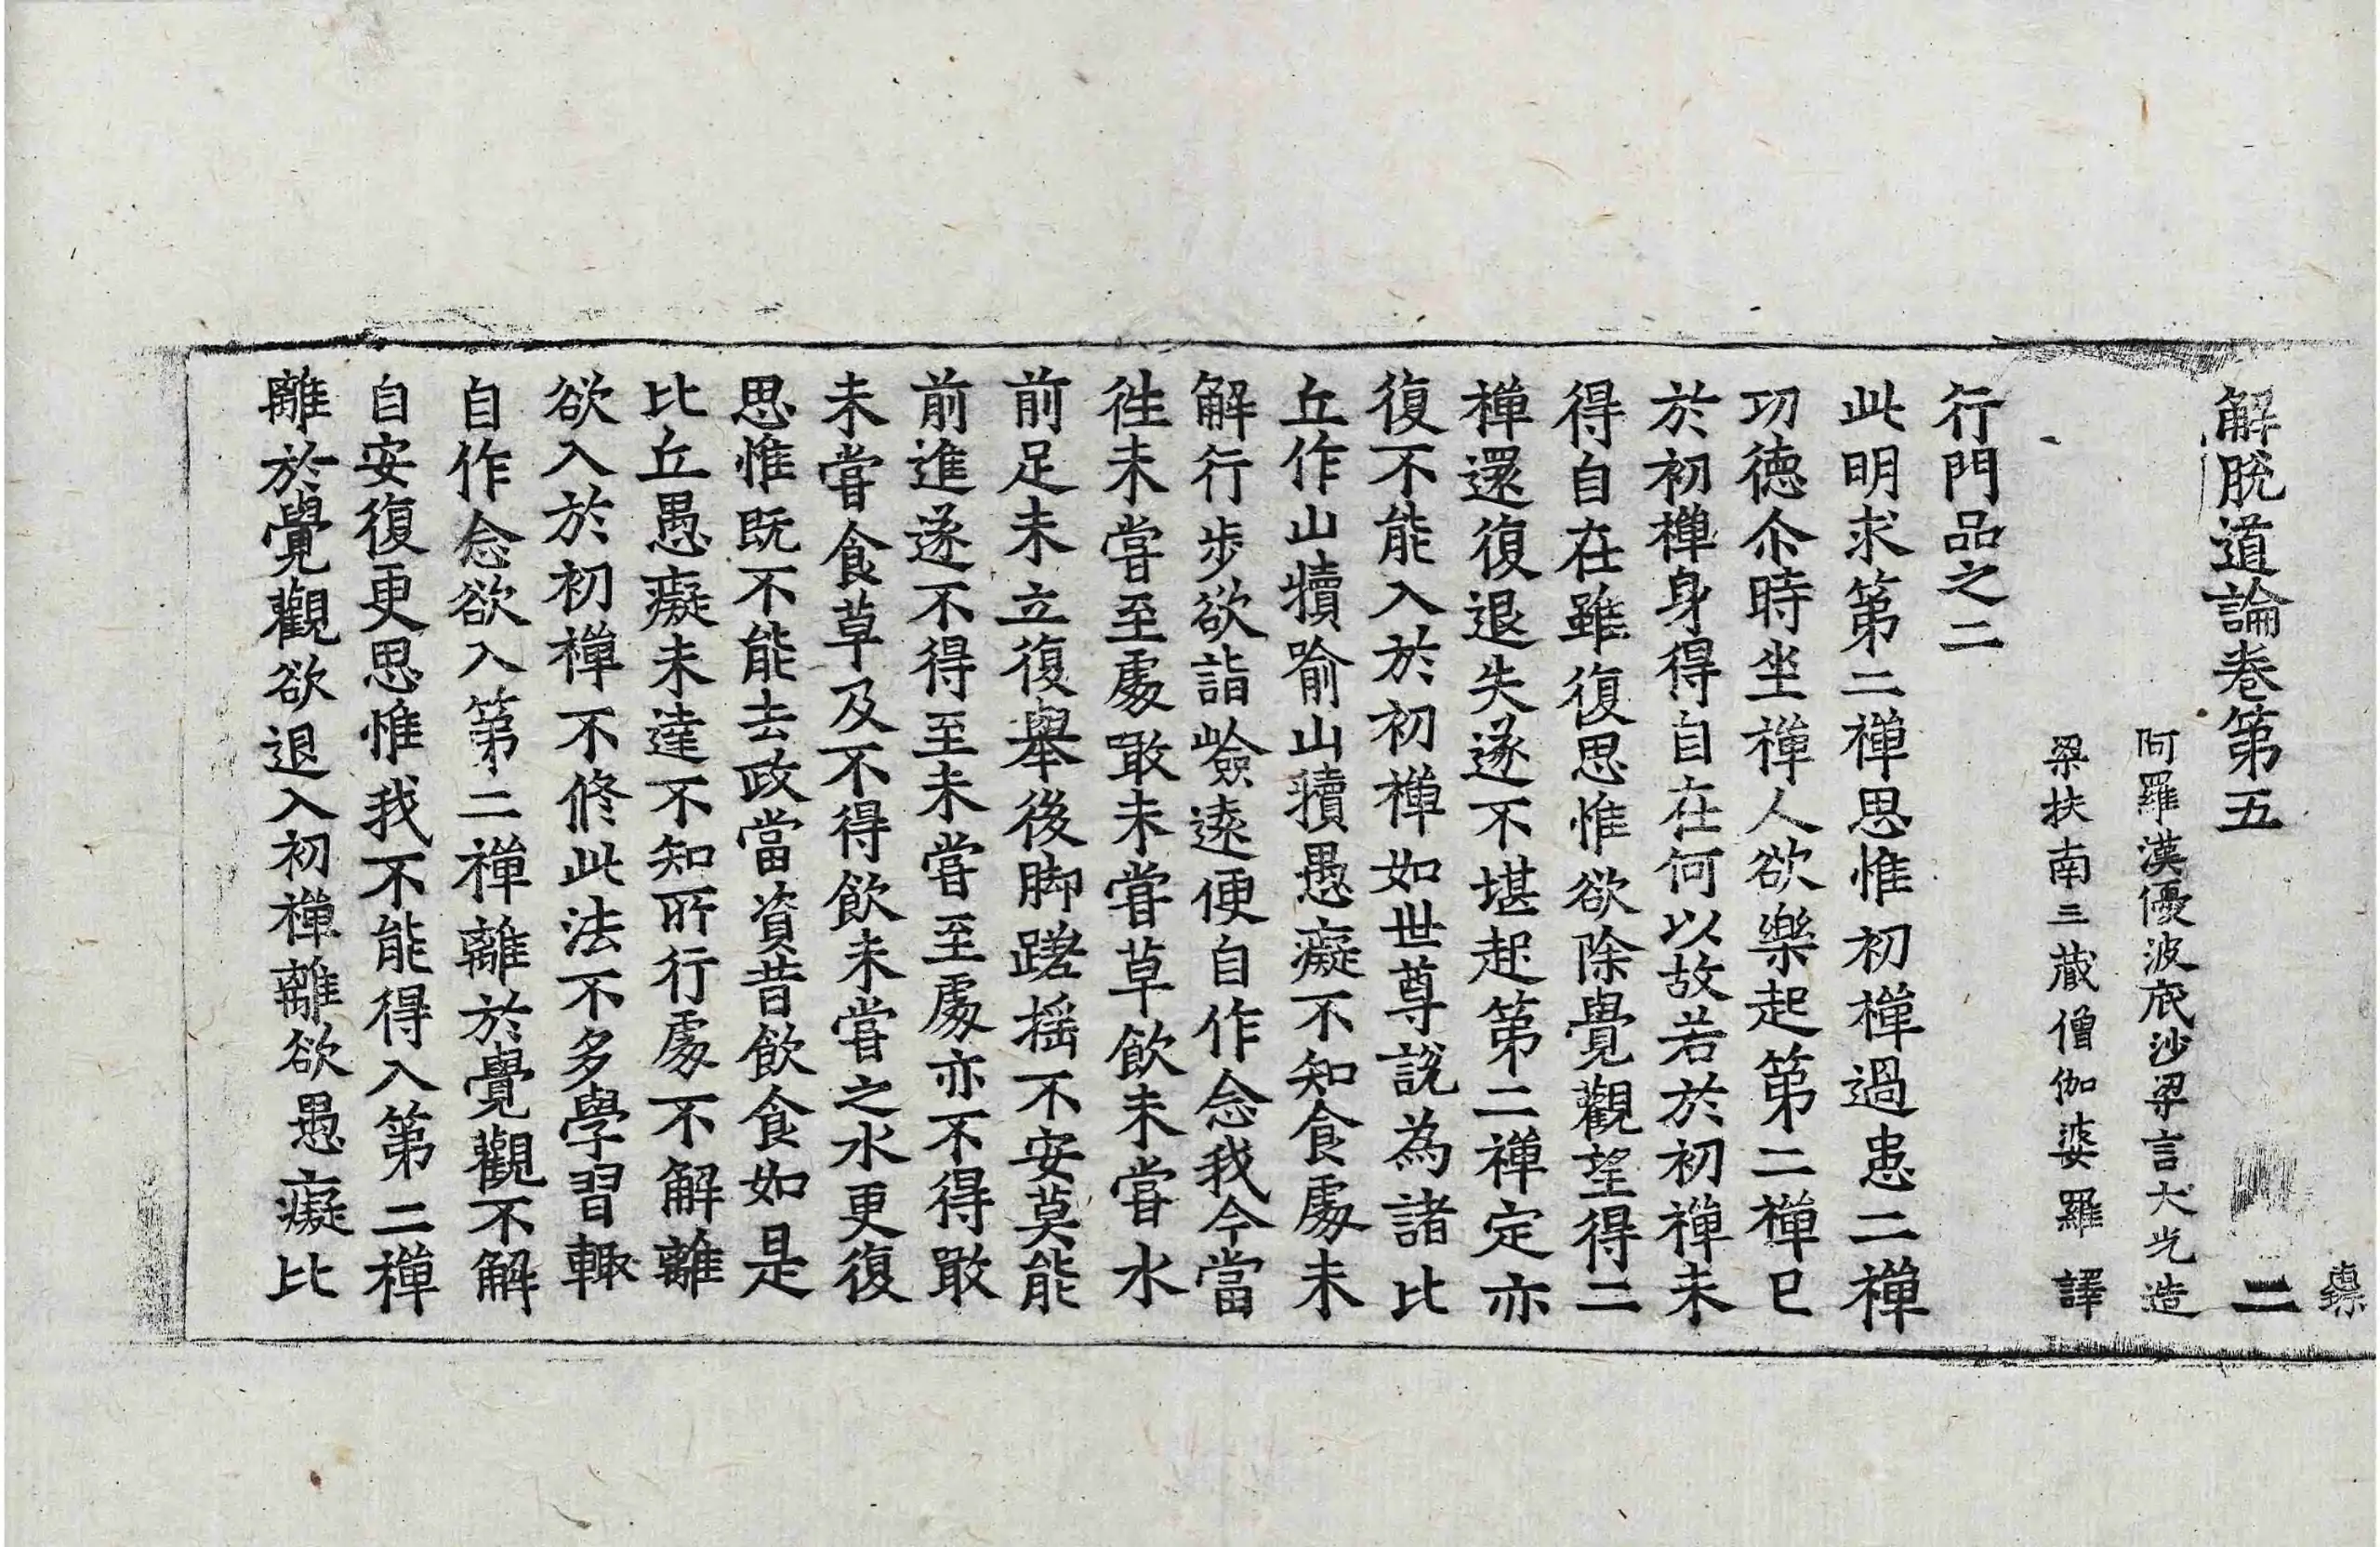 解脫道論卷第五 二
阿羅漢優波底沙梁言大光造
梁扶南三藏僧伽婆羅 譯
行門品之二
此明求第二禪思惟初禪過患二禪
功德尒時坐禪人欲樂起第二禪已
於初禪身得自在何以故若於初禪未
得自在雖復思惟欲除覺觀望得二
禪還復退失遂不堪起第二禪定亦
復不能入於初禪如世尊說為諸比
丘作山犢喻山犢愚癡不知食處未
解行步欲詣嶮遠便自作念我今當
往未嘗至處噉未嘗草飲未嘗水
前足未立復舉後脚蹉搖不安莫能
前進遂不得至未嘗至處亦不得噉
未嘗食草及不得飲未嘗之水更復
思惟既不能去政當資昔飲食如是
比丘愚癡未達不知所行處不解離
欲入於初禪不修此法不多學習輙
自作念欲入第二禪離於覺觀不解
自安復更思惟我不能得入第二禪
離於覺觀欲退入初禪離欲愚癡比